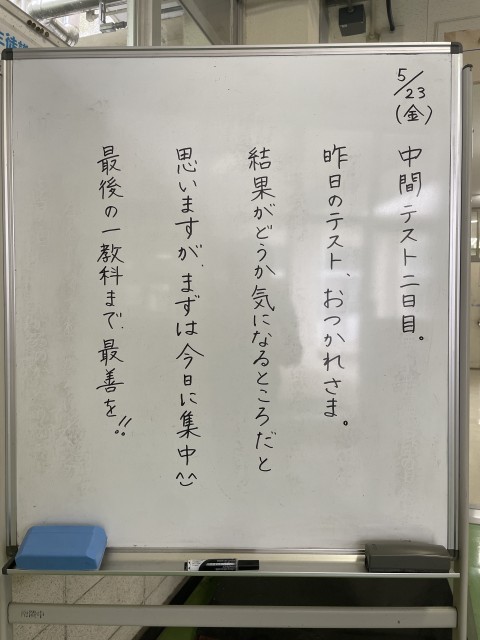 5/23
(金)
中間テスト二日目。
昨日のテスト、おつかれさま。
結果がどうか気になるところだと
思いますが、まずは今日に集中^^
最後の一教科まで、最善を!!